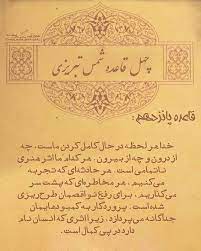 چهل قاعده شمس تبریزی:
قاعده پانزدهم:
خدا هر لحظه در حال کامل کردن ماست، چه
از درون و چه از بیرون. هر کدام ما اثر هنری
ناتمامی است. هر حادثه‌ای که تجربه
می‌کنیم، هر مخاطره‌ای که پشت سر
می‌گذاریم، برای رفع نواقصمان طرح‌ریزی
شده است. پروردگار به کمبودهایمان
جداگانه می‌پردازد، زیرا اثری که انسان نام
دارد در پی کمال است.